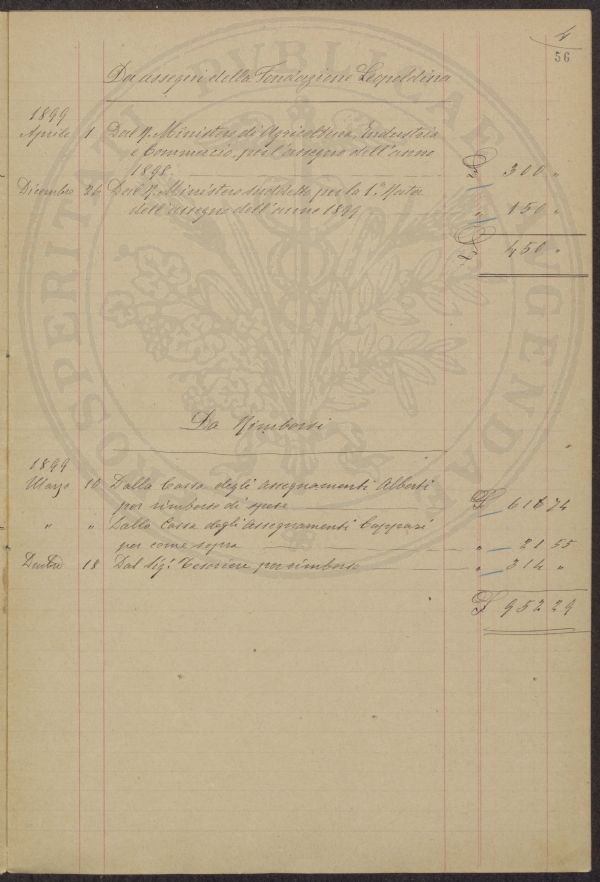 4
56
Da assegni della Fondazione Leopoldina
1899
Aprile 1 Dal R. Ministero di Agricoltura, Industria
e Commercio, per l'assegno dell'anno
1898 £ 300 "
Dicembre 26 Dal R. Ministero suddetto per la 1.a Rata
dell'assegno dell'anno 1899 " 150 "
£ 450 "
Da Rimborsi
1899
Marzo 10 Dalla Cassa degli assegnamenti Alberti
per rimborso di spese £ 616 74
" " Dalla Cassa degli assegnamenti Cuppari
per come sopra " 21 55
18 Dal Sig.r Tesoriere per rimborso " 314 "
£ 952 29
PROSPERITATI PUBLICAE AUGENDAE